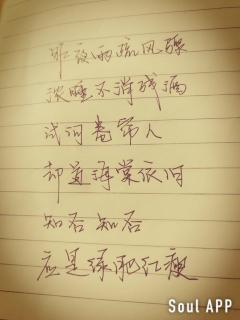 昨夜雨疏风骤
浓睡不消残酒
试问卷帘人
却道海棠依旧
知否 知否
应是绿肥红瘦
Soul APP